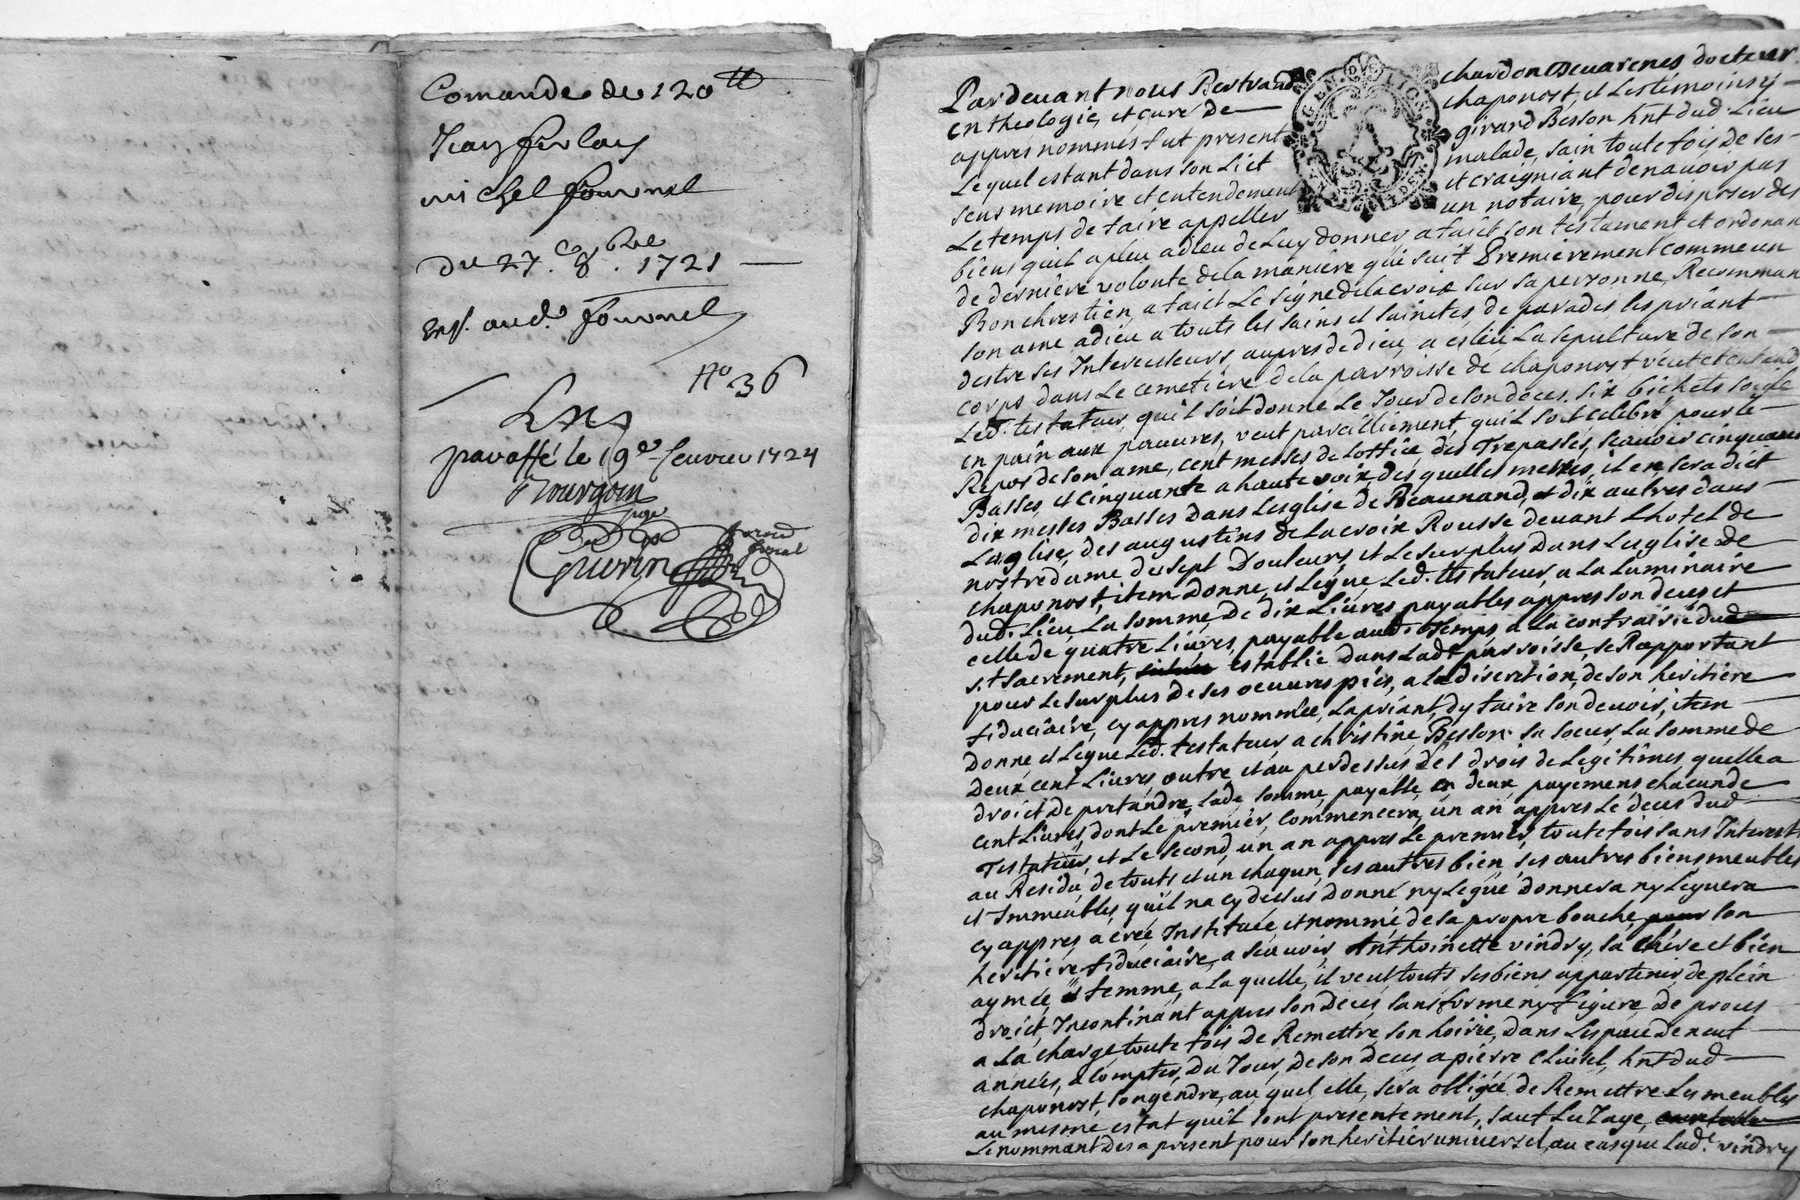 Comande de 120 ₶
Jean ferlay
michel fournel
du 27.e 8bre. 1721
No 36
paraffé le 19e fevrier 1724
Bourgoin
Guerin
GEN. DE LION
Pardevant nous Bertrand chardon Devarenes docteur
en theologie, et curé de chaponost, et Les témoins cy
appres nommés fut present girard Besson hnt dud. Lieu
Lequel estant dans son Lict malade, sain toute fois de ses
sens memoire et entendement et craigniant denavoir pas
Le temps de faire appeller un notaire, pour disposer des
biens quil a pleu a dieu de Luy donner a faict son testament et ordonan
de derniere volonté de la maniere qui suit Premierement comme un
Bon chrestien, a faict Le signe de la croix sur sa personne, Recomman
son ame a dieu a touts les sains et sainctes de paradis les priant
destre ses Intercesseurs aupres de dieu, a esleü La sepulture de son
corps dans Le cemetiere de la parroisse de chaponost veut et entend
Led. testateur, quil soit donné Le Jour de son deces, six bichets soigle
en pain aux pauvres, veut pareilliement quil soit celebré pour le
Repos de son ame, cent messes de Loffice des Trepassés, scavoir cinquante
Basses, et cinquante a haute voix, des quelles messes, il en sera dict
dix messes Basses dans Leglise de Beaunand, et dix autres dans
Leglise des augustins de La croix Rousse devant Lhotel de
nostre dame de sept Douleurs, et Le surplus dans Leglise de
chaponost, item Donne, et Legue Led. testateur, a La Luminaire
dud. Lieu La somme, de dix Livres payables appres son deces et
celle de quatre Livres, payable aud. temps, a La confrairie du
s.t sacrement, establie dans Lad. parroisse, se Rapportant
pour Le surplus de ses oeuvres pies, a la discretion, de son heritiere
fiduciaire, cy appres nommée, La priant, dy faire son devoir, item
Donne et Legue Led. testateur, a christine Besson sa soeur, La somme de
Deux cent Livres, outre et au perdessus des drois de Legitimes quelle a
droict de pretandre, Lade. somme, payable, en deux payemens, chacun de
cent Livres, dont Le premier, commencera, un an appres Le deces dud.
Testateur, et Le second, un an appres Le premier, toute fois sans Interest
au Residu de touts et un chaqun, ses autres bien, ses autres biens meubles
et Immeubles, quil na cy dessus donné ny Legué, donnera ny Leguera
cy appres, a creé, Instituée, et nommé de sa propre bouche, son
heritiere fiduciaire, a scavoir Anthoinette vindry, sa chere et bien
aymée femme, a la quelle, il veut, touts ses biens appartenir, de plein
droict, Incontinant appres son deces, sans forme ny figure De proces
a La charge toute fois De Remettre son hoirie, Dans Lespace de neuf
années, a compter, Du Jour, de son Deces, a pierre Cluisel, hnt. dud.
chaponost, son gendre, au quel elle, sera obligée de Remettre Les meubles
au mesme estat quil sont presentement, sauf Luzage,
Le nommant Des a present pour son heritier universel, au cas que Lade. vindry